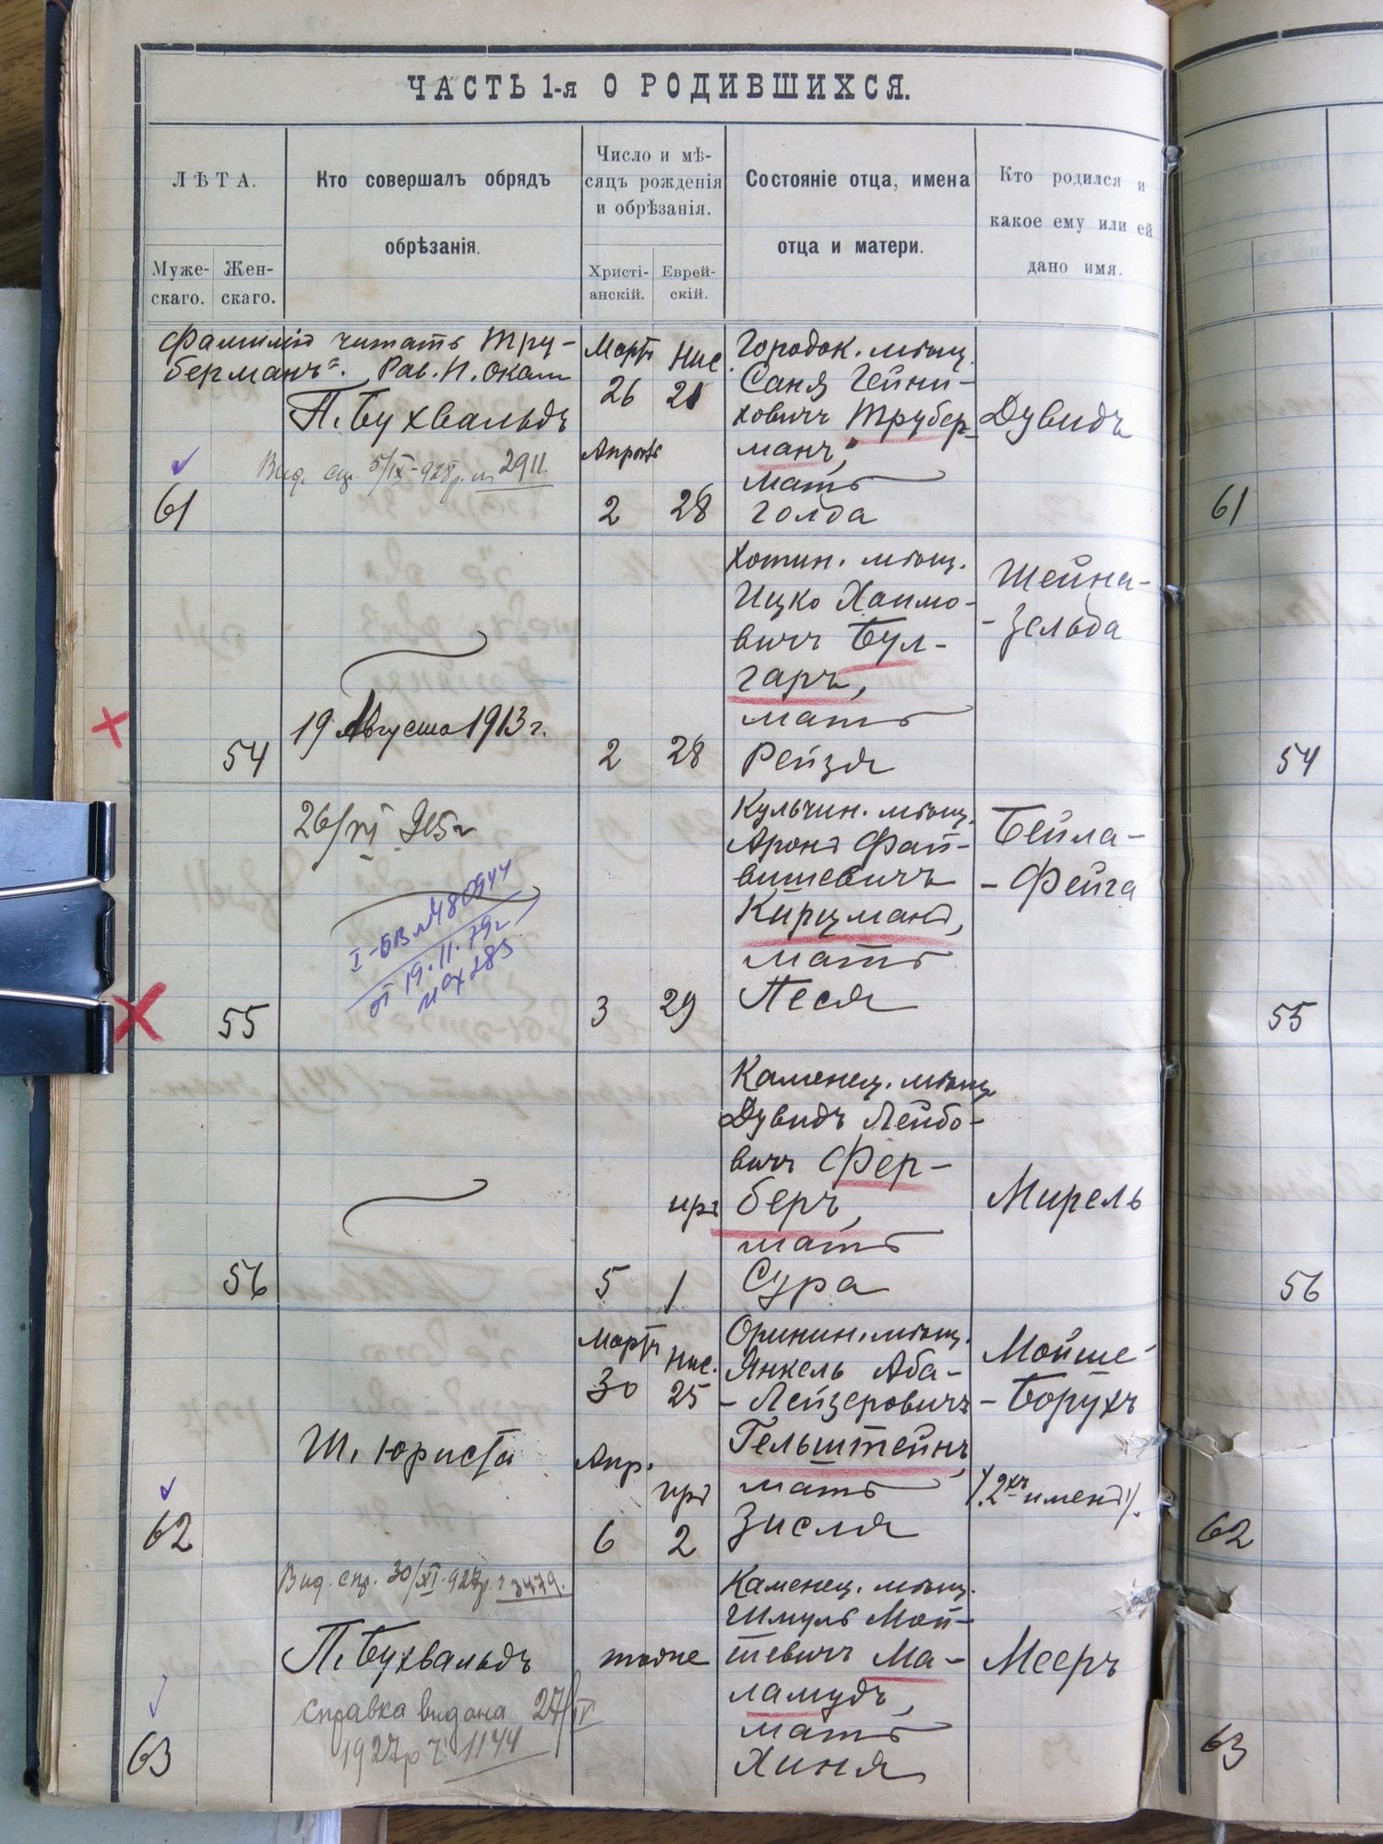 ЧАСТЬ 1-я О РОДИВШИХСЯ.
ЛѢТА.
Муже-
скаго.
Жен-
скаго.
Кто совершалъ обрядъ
обрѣзанія.
Число и мѣ-
сяцъ рожденія
и обрѣзанія.
Христі-
анскій.
Еврей-
скій.
Состояніе отца, имена
отца и матери.
Кто родился и
какое ему или ей
дано имя.
Фамилію читать Тру-
берманъ". Рав. И.
П. Бухвальдъ
Вид. 5/IX-928р. 2911
61
Мартъ Нис.
26 21
Апрѣль
2 28
Городок. мѣщ.
Саня Гейни-
ховичъ Трубер-
манъ,
мать
Голда
Дувидъ
61
19 Августа 1913 г.
54
2 28
Хотин. мѣщ.
Ицко Хаимо-
вичъ Бул-
гаръ,
мать
Рейзя
Шейна-
-Зельда
54
26/VI 915 г
I-БВ №480944
от 19.11.79г
55
3 29
Кульчин. мѣщ.
Аронъ Фай-
вишевичъ
Кирцманъ,
мать
Песя
Бейла-
-Фейга
55
56
иръ
5 1
Каменец. мѣщ.
Дувидъ Лейбо-
вичъ Фер-
беръ,
мать
Сура
Мирель
56
Ш. Юриста
62
Мартъ Нис.
30 25
Апр.
иръ
6 2
Оринин. мѣщ.
Янкель Аба-
-Лейзеровичъ
Гельштейнъ,
мать
Зисля
Мойше-
-Борухъ
/.2хъ именъ/.
62
Вид. спр. 30/XI-927р. 3479.
П. Бухвальдъ
справка видана 27/IV
1927р ч. 1144
63
тоже
Каменец. мѣщ.
Шмуль Мой-
шевичъ Ма-
ламудъ,
мать
Хиня
Мееръ
63